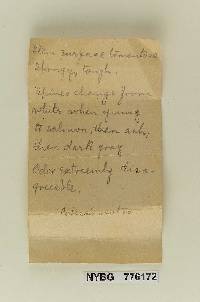 Stem surface tomentose
Spongy, tough.
Spines change from
white when young
to salmon, then ash,
then dark gray
Odor extremely disa-
greeable.
NYBG 776172